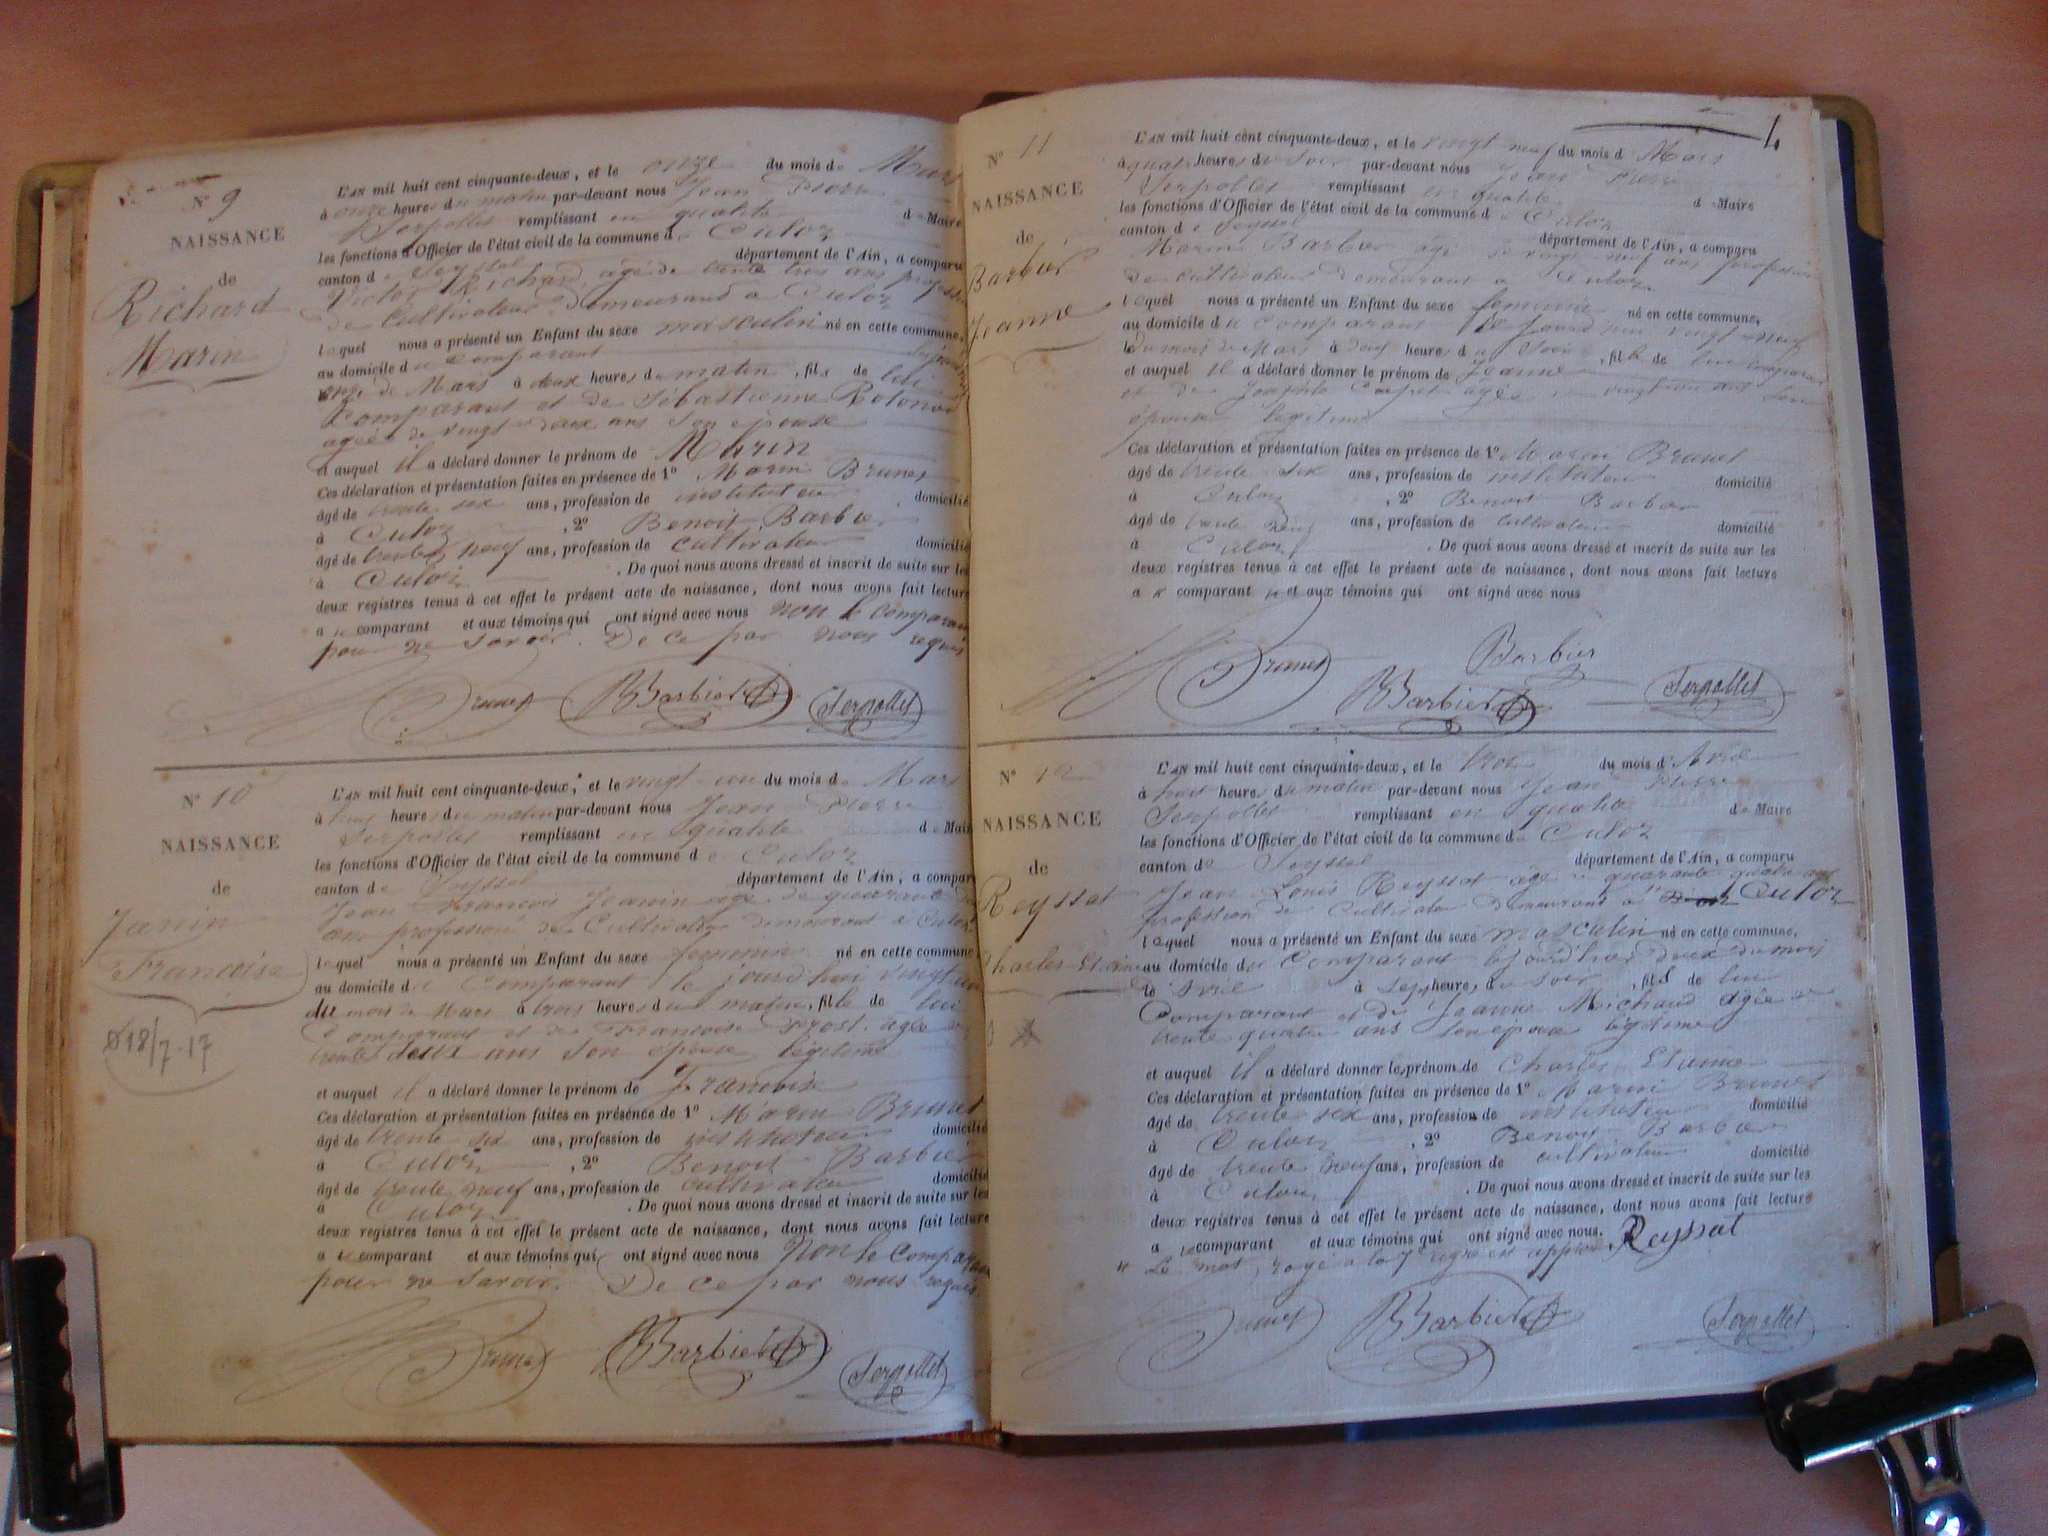 Nº 9
NAISSANCE
de
Richard
Marin
L'AN mil huit cent cinquante-deux, et le onze du mois de Mars
à onze heures du matin par-devant nous Jean Pierre
Serpollet remplissant en qualité de Maire
les fonctions d'Officier de l'état civil de la commune de Culoz
canton de Seyssel département de l'Ain, a comparu
Victor Richard, agé de trente trois ans profession
de Cultivateur demeurand a Culoz
lequel nous a présenté un Enfant du sexe masculin né en cette commune,
au domicile du comparant
onze de Mars à deux heures du matin, fils de lui
Comparant et de Sébastienne
agée de vingt deux ans son épouse
et auquel il a déclaré donner le prénom de Marin
Ces déclaration et présentation faites en présence de 1º Marin Brunet
âgé de trente six ans, profession de instituteur domicilié
à Culoz, 2º Benoit Barbier
âgé de trente neuf ans, profession de cultivateur domicilié
à Culoz. De quoi nous avons dressé et inscrit de suite sur les
deux registres tenus à cet effet le présent acte de naissance, dont nous avons fait lecture
au comparant et aux témoins qui ont signé avec nous non le comparant
pour ne savoir. De ce par nous requis
Brunet BBarbier Serpollet
Nº 10
NAISSANCE
de
Janin
Francoise
18/7-17
L'AN mil huit cent cinquante-deux, et le vingt-un du mois de Mars
à heures du matin par-devant nous Jean Pierre
Serpollet remplissant en qualité de Maire
les fonctions d'Officier de l'état civil de la commune de Culoz
canton de Seyssel département de l'Ain, a comparu
Jean Francois Jeanin agé de quarante
ans profession de Cultivateur demeurant a Culoz
lequel nous a présenté un Enfant du sexe feminin né en cette commune,
au domicile du Comparant le jourd'hui vingt un
du mois de Mars à trois heures du matin, fille de lui
Comparant et de Francoise agée de
trente deux ans son epouse légitime
et auquel il a déclaré donner le prénom de Francoise
Ces déclaration et présentation faites en présence de 1º Marin Brunet
âgé de trente six ans, profession de instituteur domicilié
à Culoz, 2º Benoit Barbier
âgé de trente neuf ans, profession de cultivateur domicilié
à Culoz. De quoi nous avons dressé et inscrit de suite sur les
deux registres tenus à cet effet le présent acte de naissance, dont nous avons fait lecture
au comparant et aux témoins qui ont signé avec nous Non le comparant
pour ne savoir. De ce par nous requis.
Brunet BBarbier Serpollet
4
Nº 11
NAISSANCE
de
Barbier
Jeanne
L'AN mil huit cent cinquante-deux, et le vingt neuf du mois de Mars
à quatre heures du soir par-devant nous Jean Pierre
Serpollet remplissant en qualité de Maire
les fonctions d'Officier de l'état civil de la commune de Culoz
canton de Seyssel département de l'Ain, a comparu
Marin Barbier agé de vingt neuf ans profession
de cultivateur demeurant a Culoz
lequel nous a présenté un Enfant du sexe feminin né en cette commune,
au domicile du comparant le jourd'hui vingt neuf
du mois de Mars à deux heures du soir, fille de lui comparant
et auquel il a déclaré donner le prénom de Jeanne
et de Josephte agée de vingt ans son
épouse légitime
Ces déclaration et présentation faites en présence de 1º Marin Brunet
âgé de trente six ans, profession de instituteur domicilié
à Culoz, 2º Benoit Barbier
âgé de trente neuf ans, profession de cultivateur domicilié
à Culoz. De quoi nous avons dressé et inscrit de suite sur les
deux registres tenus à cet effet le présent acte de naissance, dont nous avons fait lecture
au comparant et aux témoins qui ont signé avec nous
Brunet Barbier BBarbier Serpollet
Nº 12
NAISSANCE
de
Reyssat
Charles-Etienne
L'AN mil huit cent cinquante-deux, et le trois du mois d'Avril
à huit heures du matin par-devant nous Jean Pierre
Serpollet remplissant en qualité de Maire
les fonctions d'Officier de l'état civil de la commune de Culoz
canton de Seyssel département de l'Ain, a comparu
Jean Louis Reyssat agé de quarante quatre ans
profession de Cultivateur demeurant a Culoz
lequel nous a présenté un Enfant du sexe masculin né en cette commune,
au domicile du Comparant le jourd'hui deux du mois
de Avril à sept heures du soir, fils de lui
Comparant et de Jeanne Michaud agée de
trente quatre ans son epouse légitime
et auquel il a déclaré donner le prénom de Charles Etienne
Ces déclaration et présentation faites en présence de 1º Marin Brunet
âgé de trente six ans, profession de instituteur domicilié
à Culoz, 2º Benoit Barbier
âgé de trente neuf ans, profession de cultivateur domicilié
à Culoz. De quoi nous avons dressé et inscrit de suite sur les
deux registres tenus à cet effet le présent acte de naissance, dont nous avons fait lecture
au comparant et aux témoins qui ont signé avec nous. Reyssat
Le mot rayé a la 7e ligne est approuvé
Brunet BBarbier Serpollet